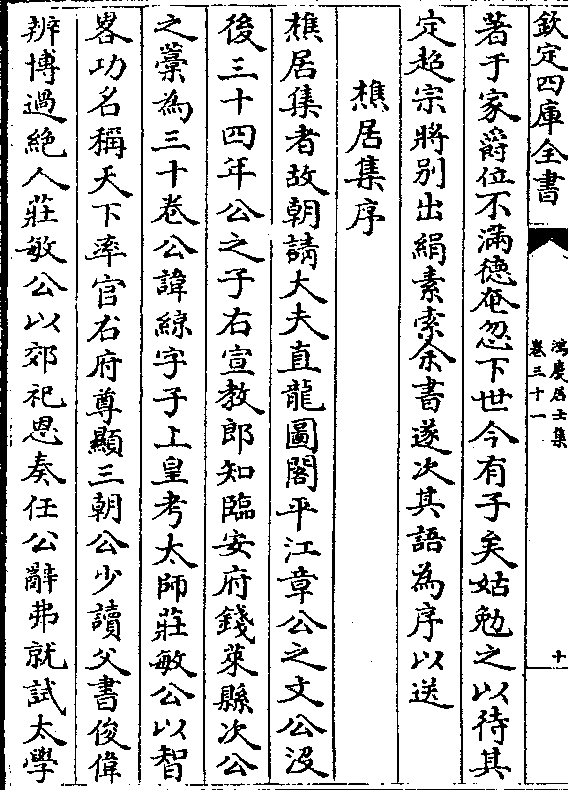 欽定四庫全書
鴻慶居士集
卷三十一
十
著于家爵位不滿德奄忽下世今有子矣姑勉之以待其
定超宗將别出絹素索余書遂次其語為序以送
樵居集序
樵居集者故朝請大夫直龍圖閣平江章公之文公沒
後三十四年公之子右宣教郎知臨安府錢塘縣次公
之藁為三十卷公諱綜字子上皇考太師莊敏公以智
畧功名稱天下率官右府尊顯三朝公少讀父書俊偉
辨博過絶人莊敏公以郊祀恩奏任公辭弗就試太學